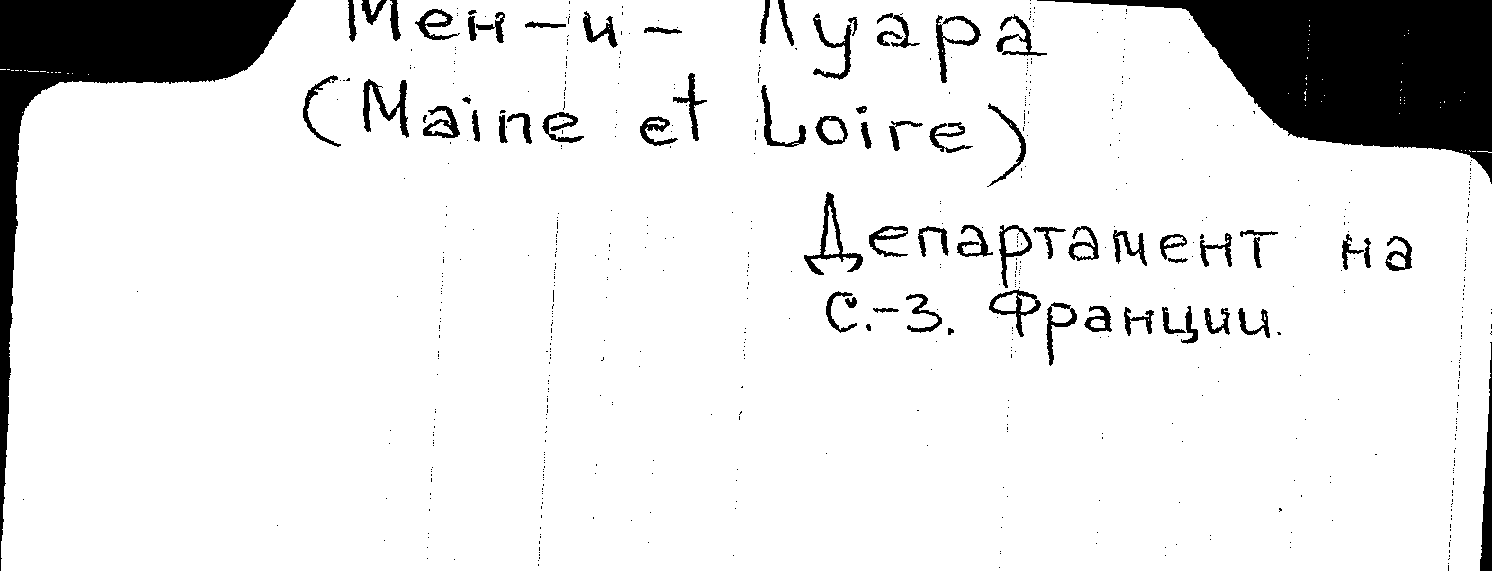 Мен-и- Луара
(Maine et Loire)
Департамент на
С.-З. Франции.